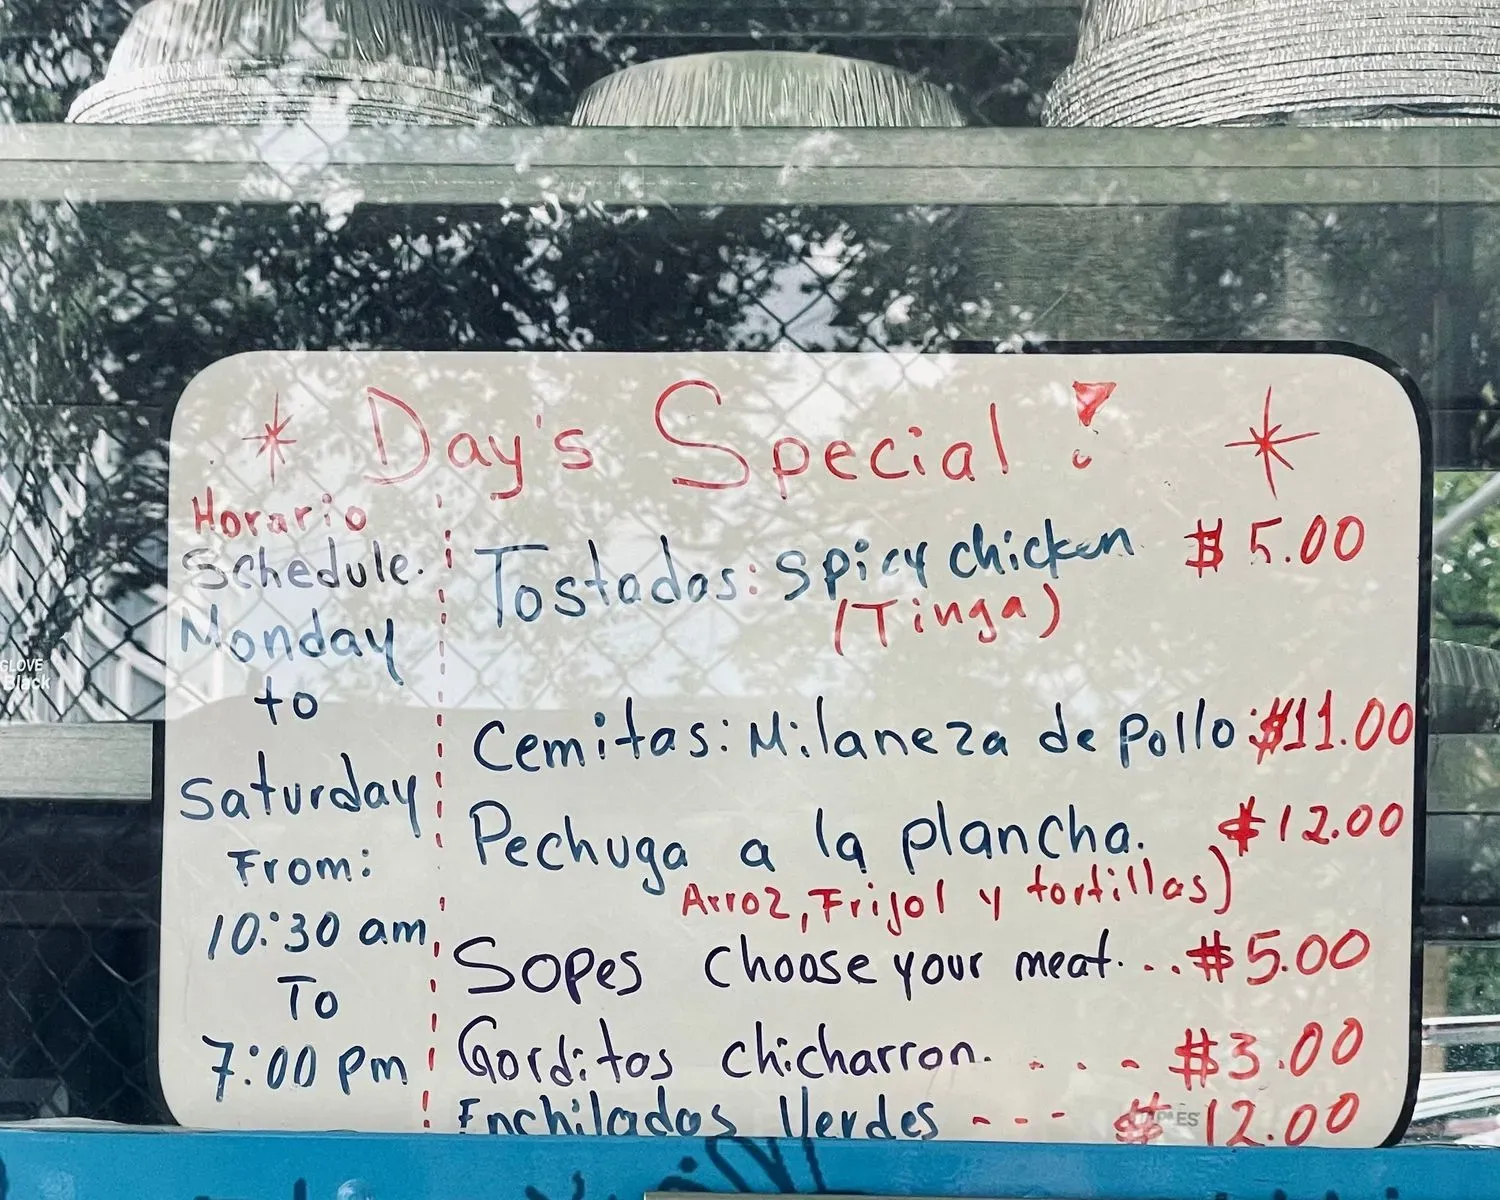 Day's Special!
Horario
Schedule.
Monday
to
Saturday
From:
10:30 am
To
7:00 pm
Tostadas: Spicy chicken $5.00
(Tinga)
Cemitas: Milaneza de pollo: $11.00
Pechuga a la plancha. $12.00
Arroz, Frijol y tortillas)
Sopes choose your meat... $5.00
Gorditas chicharron. . . - $3.00
Enchiladas Verdes - - - $12.00
GLOVE
Black